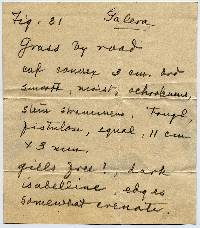 Fig. 21 Galera.
Grass by road
cap convex 3 cm. brd
smooth, moist, ochraceous,
stem strammens, tough,
fistulou, equal, 11 cm
x 3 mm.
gills free!, dark
isabelline, edges
somewhat crenate.